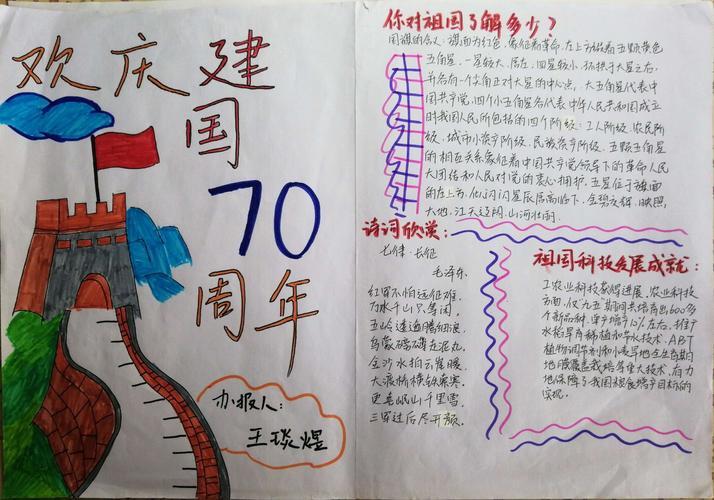 欢庆建
国
70
周年
办报人：
王琰煜
你对祖国了解多少？
国旗的含义：旗面为红色，象征着革命，左上方缀着五颗黄色
五角星，一星较大，居左，四星较小，环拱于大星之右，
并各有一个角正对大星的中心点，大五角星代表中
国共产党，四个小五角星各代表中华人民共和国成立
时我国人民所包括的四个阶级：工人阶级、农民阶
级、城市小资产阶级、民族资产阶级。五颗五角星
的相互关系象征着中国共产党领导下的革命人民
大团结和人民对党的衷心拥护，五星位于旗面
的左上方，似闪闪星辰居高临下，金碧交辉，映照
大地，江天辽阔，山河壮丽。
诗词欣赏：
七律·长征
毛泽东
红军不怕远征难，
万水千山只等闲。
五岭逶迤腾细浪，
乌蒙磅礴走泥丸。
金沙水拍云崖暖，
大渡桥横铁索寒。
更喜岷山千里雪，
三军过后尽开颜。
祖国科技发展成就：
工农业科技蒙得进展，农业科技
方面，仅九五期间共培育出600多
个新品种，单产增产12%左右，推广
水稻旱育稀植和节水技术，ABT
植物调节剂和小麦异地全生育期
地膜覆盖栽培等重大技术，有力
地保障了我国粮食增产目标的
实现。